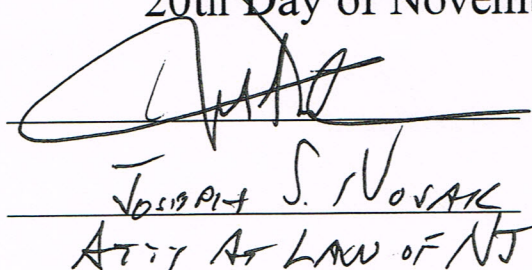 20th Day of Novem
Joseph S. Novak
Atty At Law of NJ